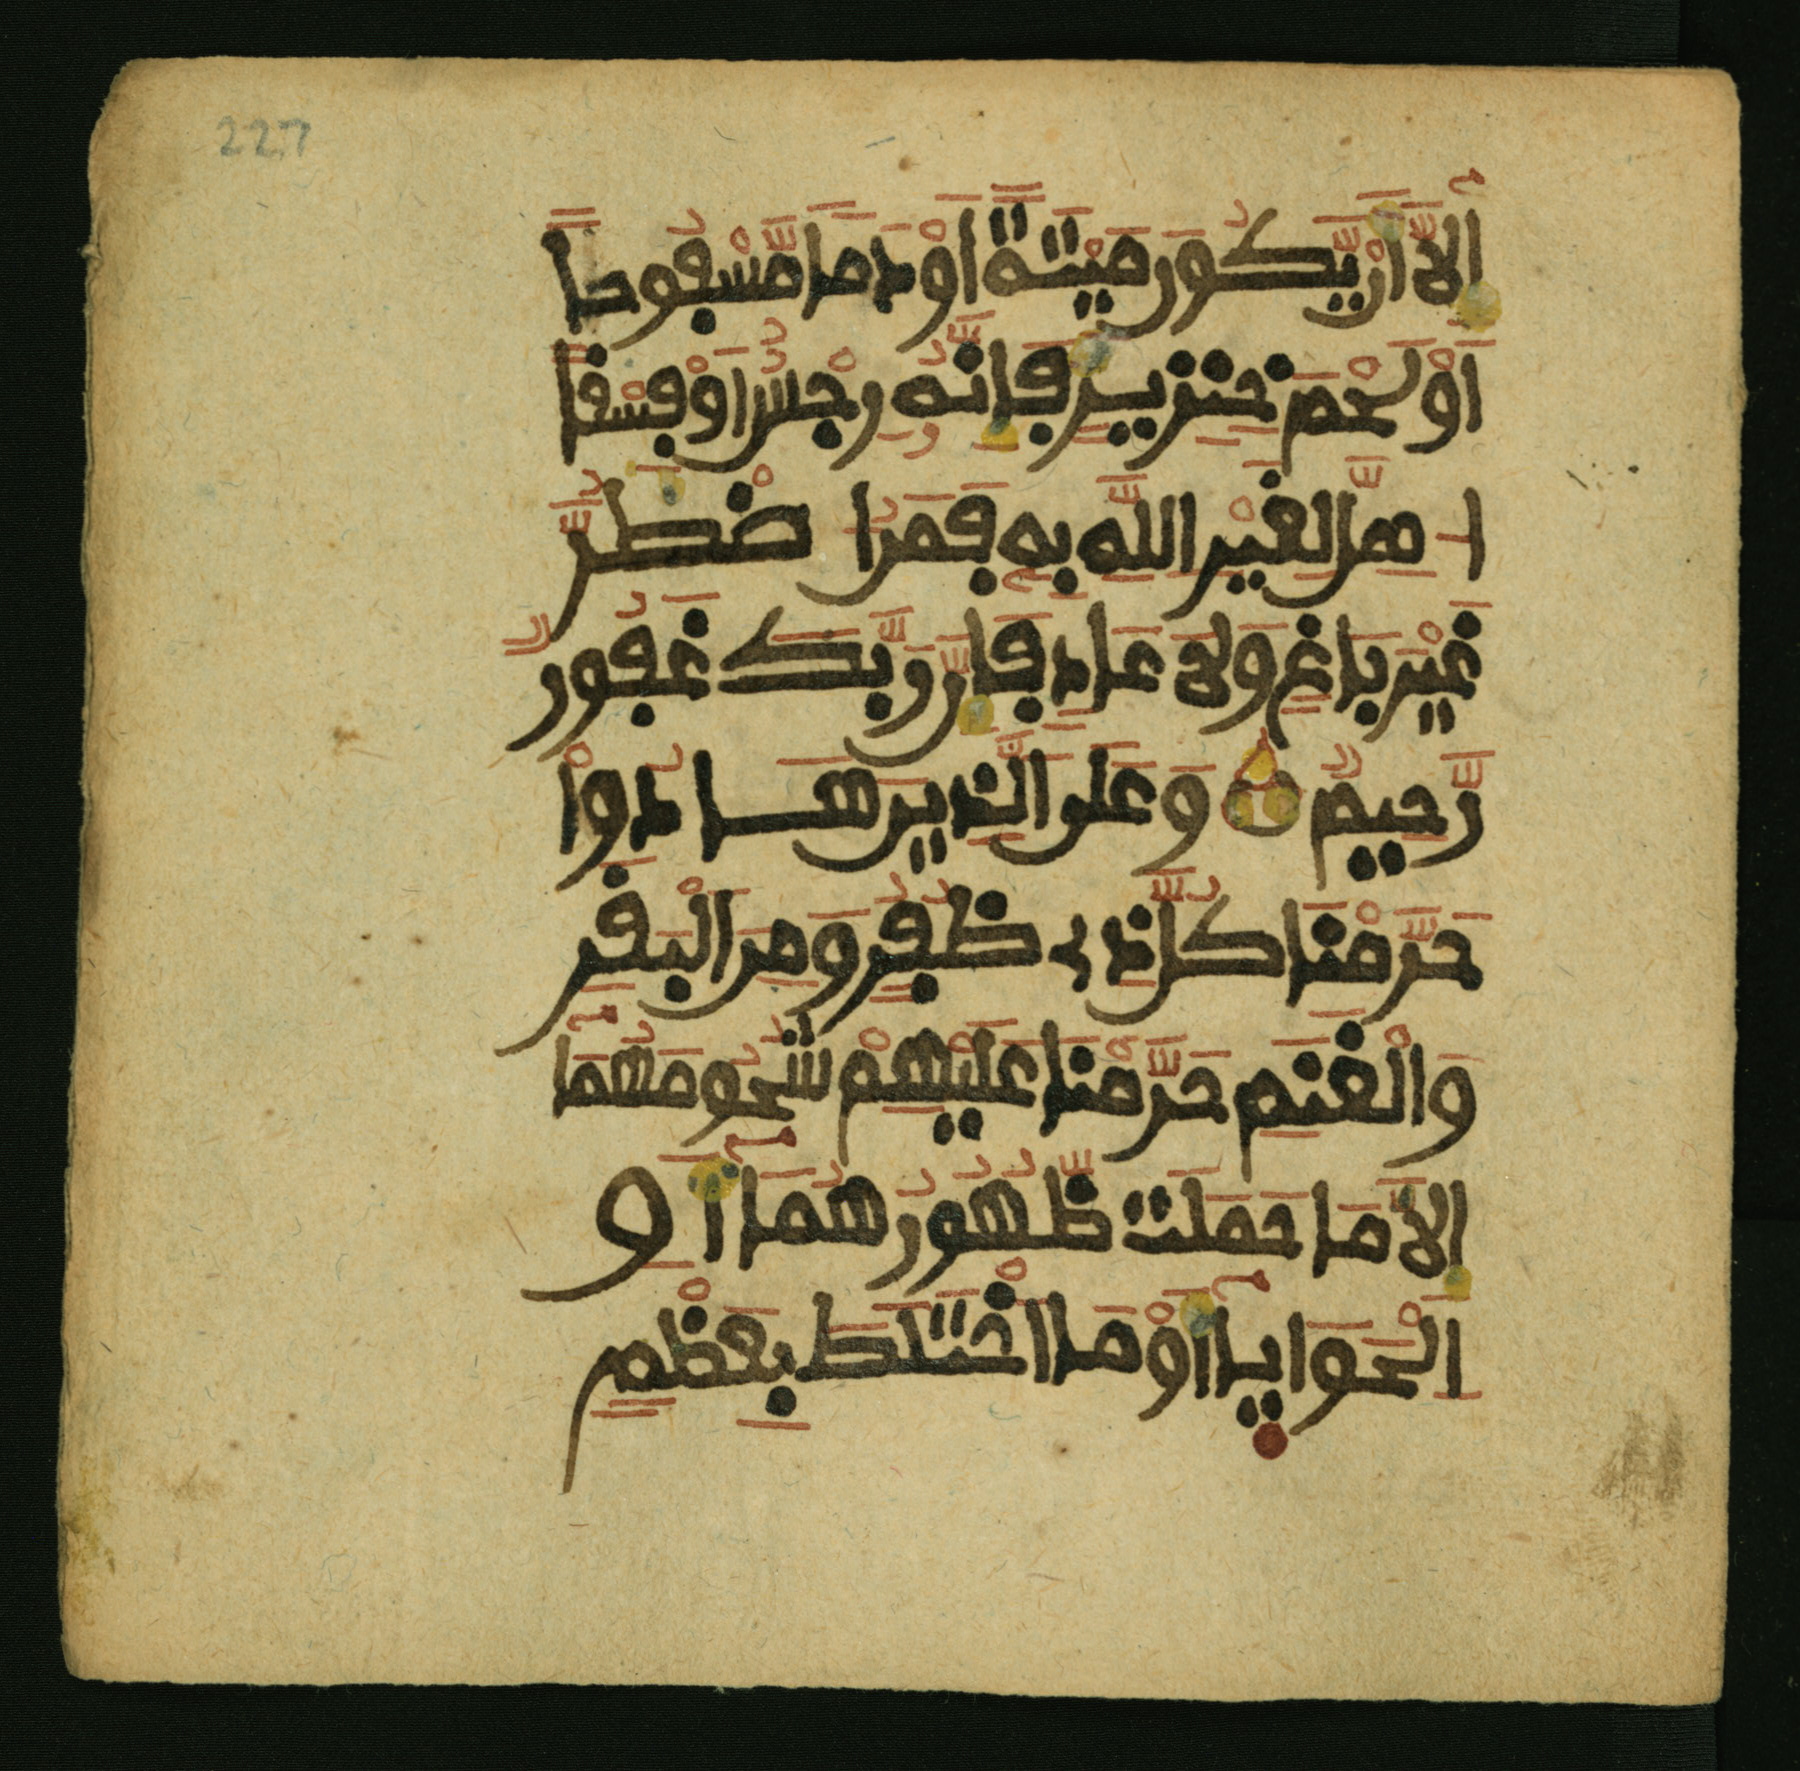 227
إِلَّا أَنْ يَّكُونَ مَيْتَةً أَوْ دَمًا مَّسْفُوحًا
أَوْ لَحْمَ خِنزِيرٍ فَإِنَّهُ رِجْسٌ أَوْ فِسْقًا
اهِلَّ لِغَيْرِ اللَّهِ بِهِ فَمَنُ اضْطُرَّ
غَيْرَ بَاغٍ وَلَا عَادٍ فَإِنَّ رَبَّكَ غَفُورٌ
رَّحِيمٌ وَعَلَى الَّذِينَ هَادُوا
حَرَّمْنَا كُلَّ ذِي ظُفُرٍ وَمِنَ الْبَقَرِ
وَالْغَنَمِ حَرَّمْنَا عَلَيْهِمْ شُحُومَهُمَا
إِلَّا مَا حَمَلَت ظُّهُورُهُمَا أَوِ
الْحَوَايَا أَوْ مَا اخْتَلَطَ بِعَظْمٍ